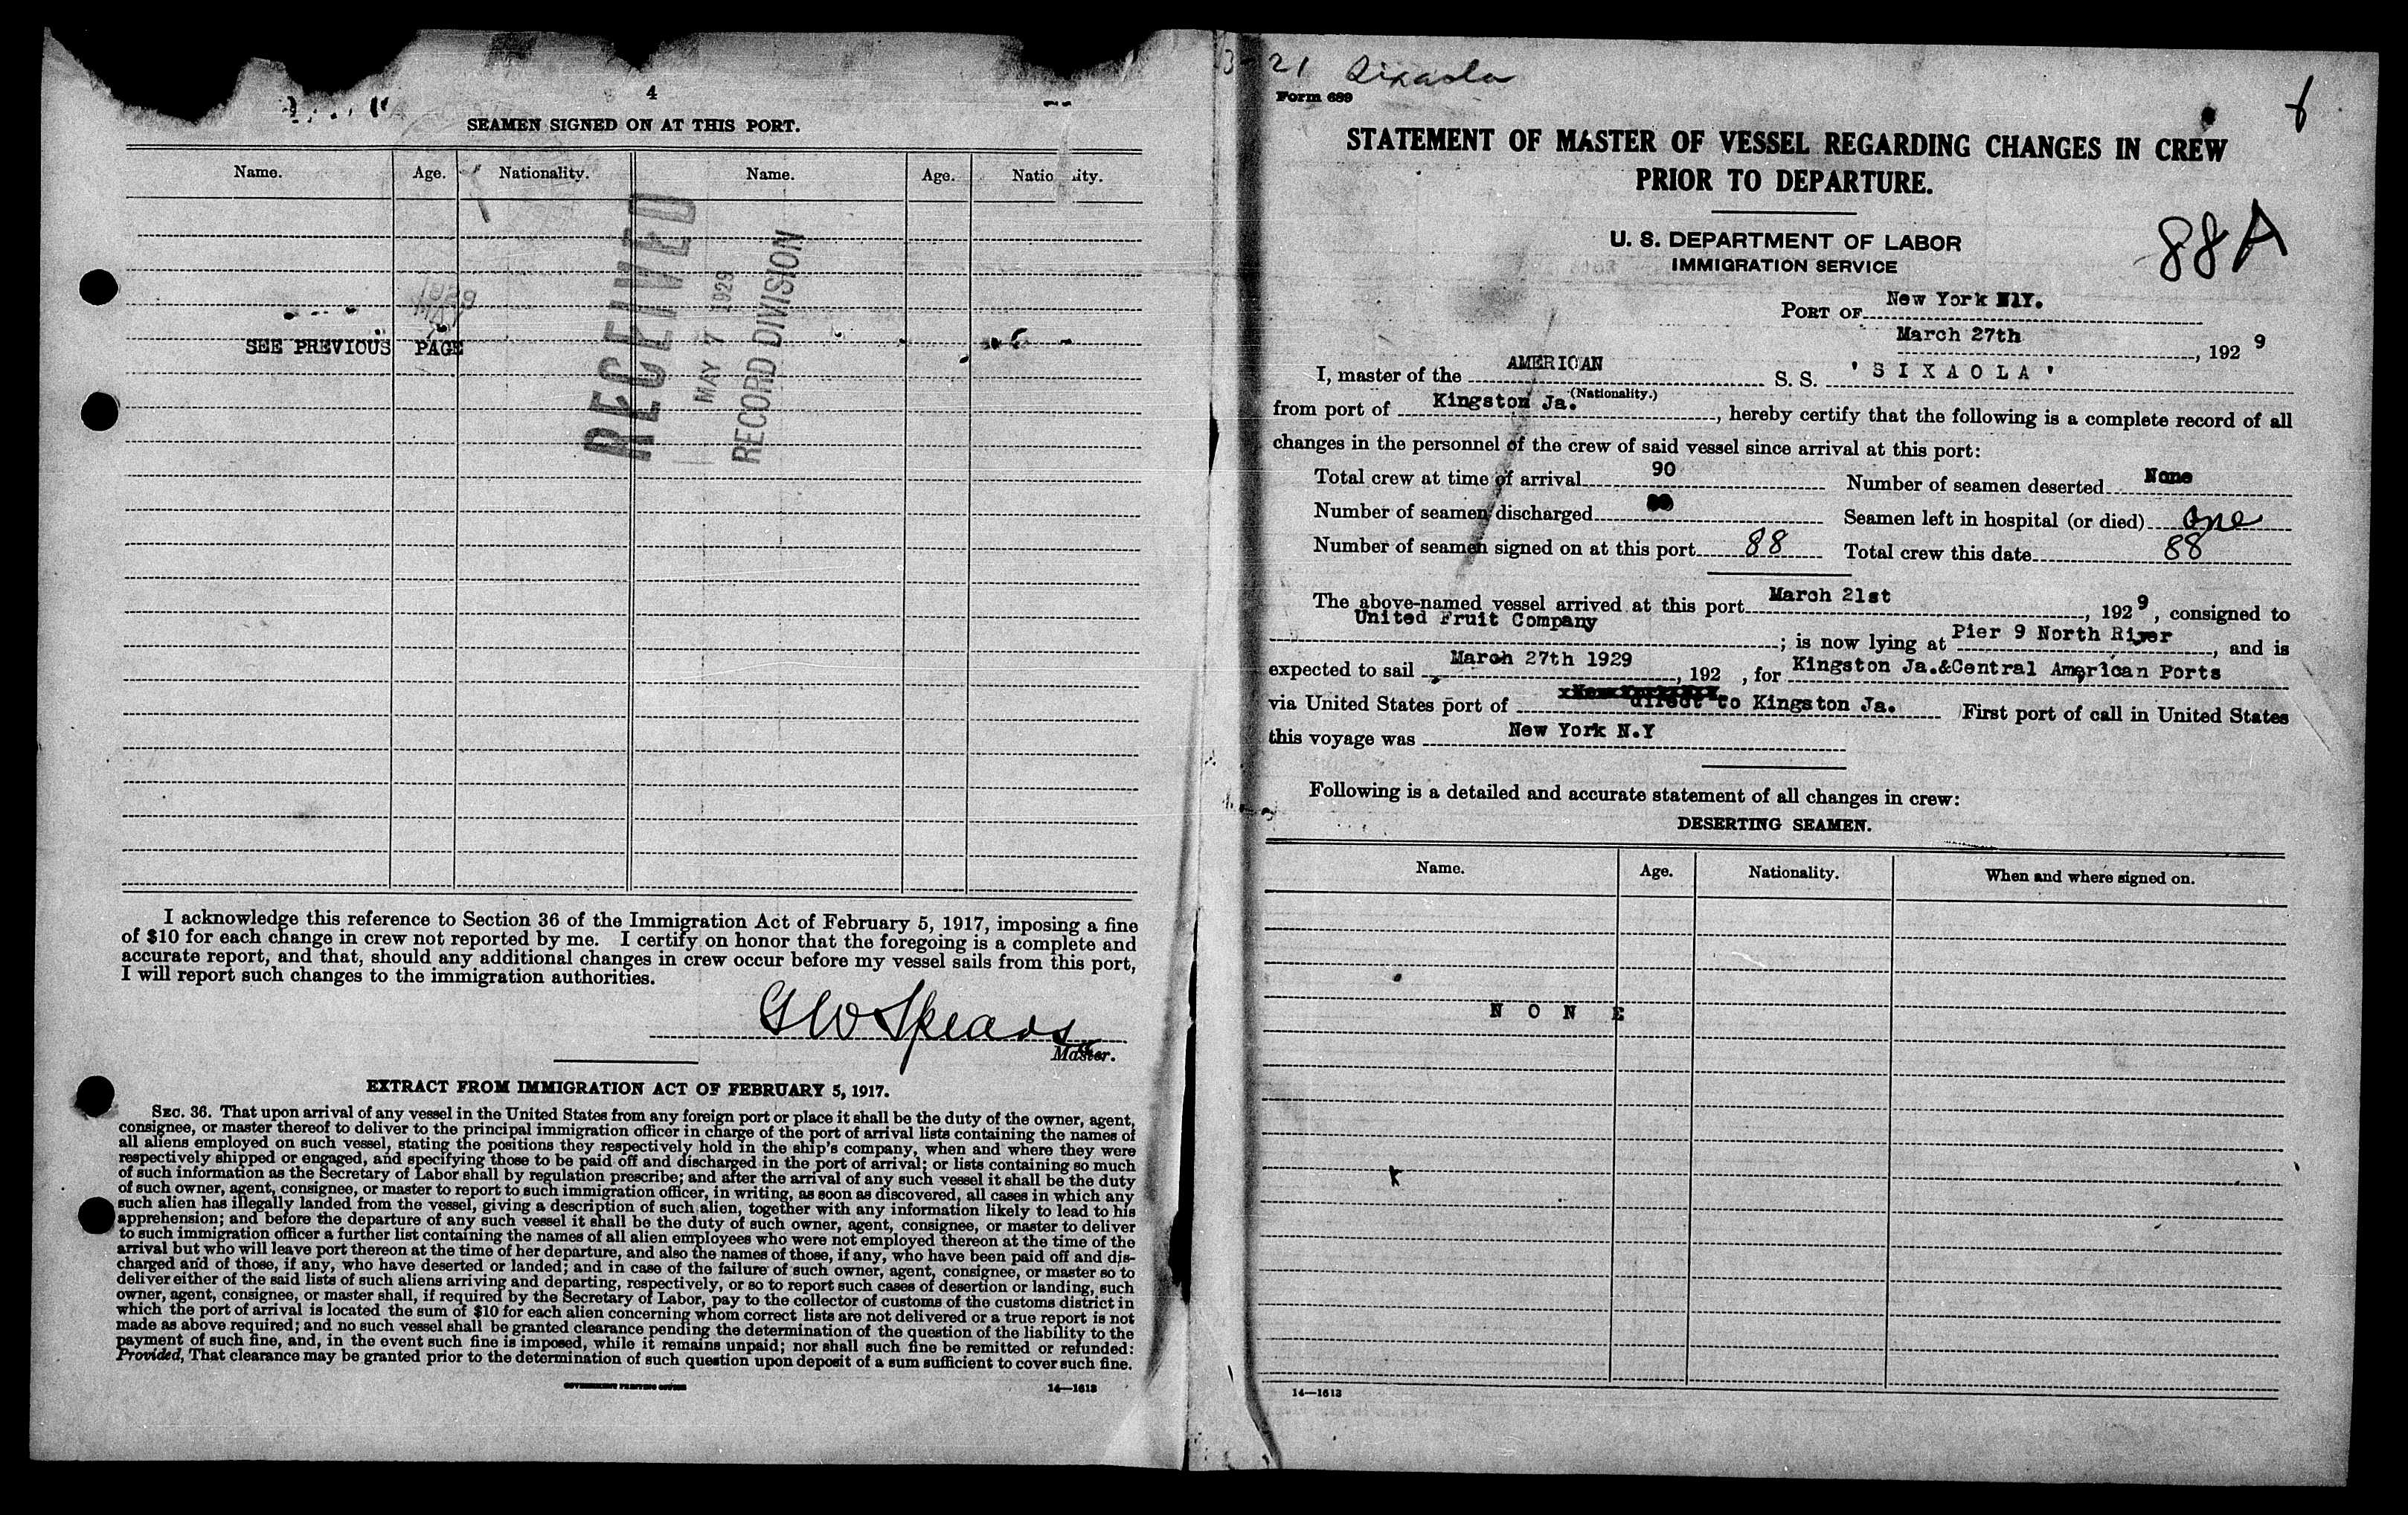 4
SEAMEN SIGNED ON AT THIS PORT.
Name. Age. Nationality. Name. Age. Natio ity.
1929
MAY
SEE PREVIOUS PAGE
RECEIVED
MAY 7 1929
RECORD DIVISION
I acknowledge this reference to Section 36 of the Immigration Act of February 5, 1917, imposing a fine
of $10 for each change in crew not reported by me. I certify on honor that the foregoing is a complete and
accurate report, and that, should any additional changes in crew occur before my vessel sails from this port,
I will report such changes to the immigration authorities.
GW Spears
Master.
EXTRACT FROM IMMIGRATION ACT OF FEBRUARY 5, 1917.
SEC. 36. That upon arrival of any vessel in the United States from any foreign port or place it shall be the duty of the owner, agent,
consignee, or master thereof to deliver to the principal immigration officer in charge of the port of arrival lists containing the names of
all aliens employed on such vessel, stating the positions they respectively hold in the ship's company, when and where they were
respectively shipped or engaged, and specifying those to be paid off and discharged in the port of arrival; or lists containing so much
of such information as the Secretary of Labor shall by regulation prescribe; and after the arrival of any such vessel it shall be the duty
of such owner, agent, consignee, or master to report to such immigration officer, in writing, as soon as discovered, all cases in which any
such alien has illegally landed from the vessel, giving a description of such alien, together with any information likely to lead to his
apprehension; and before the departure of any such vessel it shall be the duty of such owner, agent, consignee, or master to deliver
to such immigration officer a further list containing the names of all alien employees who were not employed thereon at the time of the
arrival but who will leave port thereon at the time of her departure, and also the names of those, if any, who have been paid off and dis-
charged and of those, if any, who have deserted or landed; and in case of the failure of such owner, agent, consignee, or master so to
deliver either of the said lists of such aliens arriving and departing, respectively, or so to report such cases of desertion or landing, such
owner, agent, consignee, or master shall, if required by the Secretary of Labor, pay to the collector of customs of the customs district in
which the port of arrival is located the sum of $10 for each alien concerning whom correct lists are not delivered or a true report is not
made as above required; and no such vessel shall be granted clearance pending the determination of the question of the liability to the
payment of such fine, and, in the event such fine is imposed, while it remains unpaid; nor shall such fine be remitted or refunded:
Provided, That clearance may be granted prior to the determination of such question upon deposit of a sum sufficient to cover such fine.
GOVERNMENT PRINTING OFFICE 14—1613
3-21 Sixaola
Form 689
STATEMENT OF MASTER OF VESSEL REGARDING CHANGES IN CREW
PRIOR TO DEPARTURE.
U. S. DEPARTMENT OF LABOR
IMMIGRATION SERVICE
88A
PORT OF New York N1Y.
March 27th, 1929
I, master of the AMERICAN S. S. 'SIXAOLA'
(Nationality.)
from port of Kingston Ja., hereby certify that the following is a complete record of all
changes in the personnel of the crew of said vessel since arrival at this port:
Total crew at time of arrival 90 Number of seamen deserted None
Number of seamen discharged Seamen left in hospital (or died) one
Number of seamen signed on at this port 88 Total crew this date 88
The above-named vessel arrived at this port March 21st, 1929, consigned to
United Fruit Company; is now lying at Pier 9 North River, and is
expected to sail March 27th 1929, 192 , for Kingston Ja.&Central American Ports
via United States port of direct to Kingston Ja. First port of call in United States
this voyage was New York N.Y
Following is a detailed and accurate statement of all changes in crew:
DESERTING SEAMEN.
Name. Age. Nationality. When and where signed on.
N O N E
14—1613